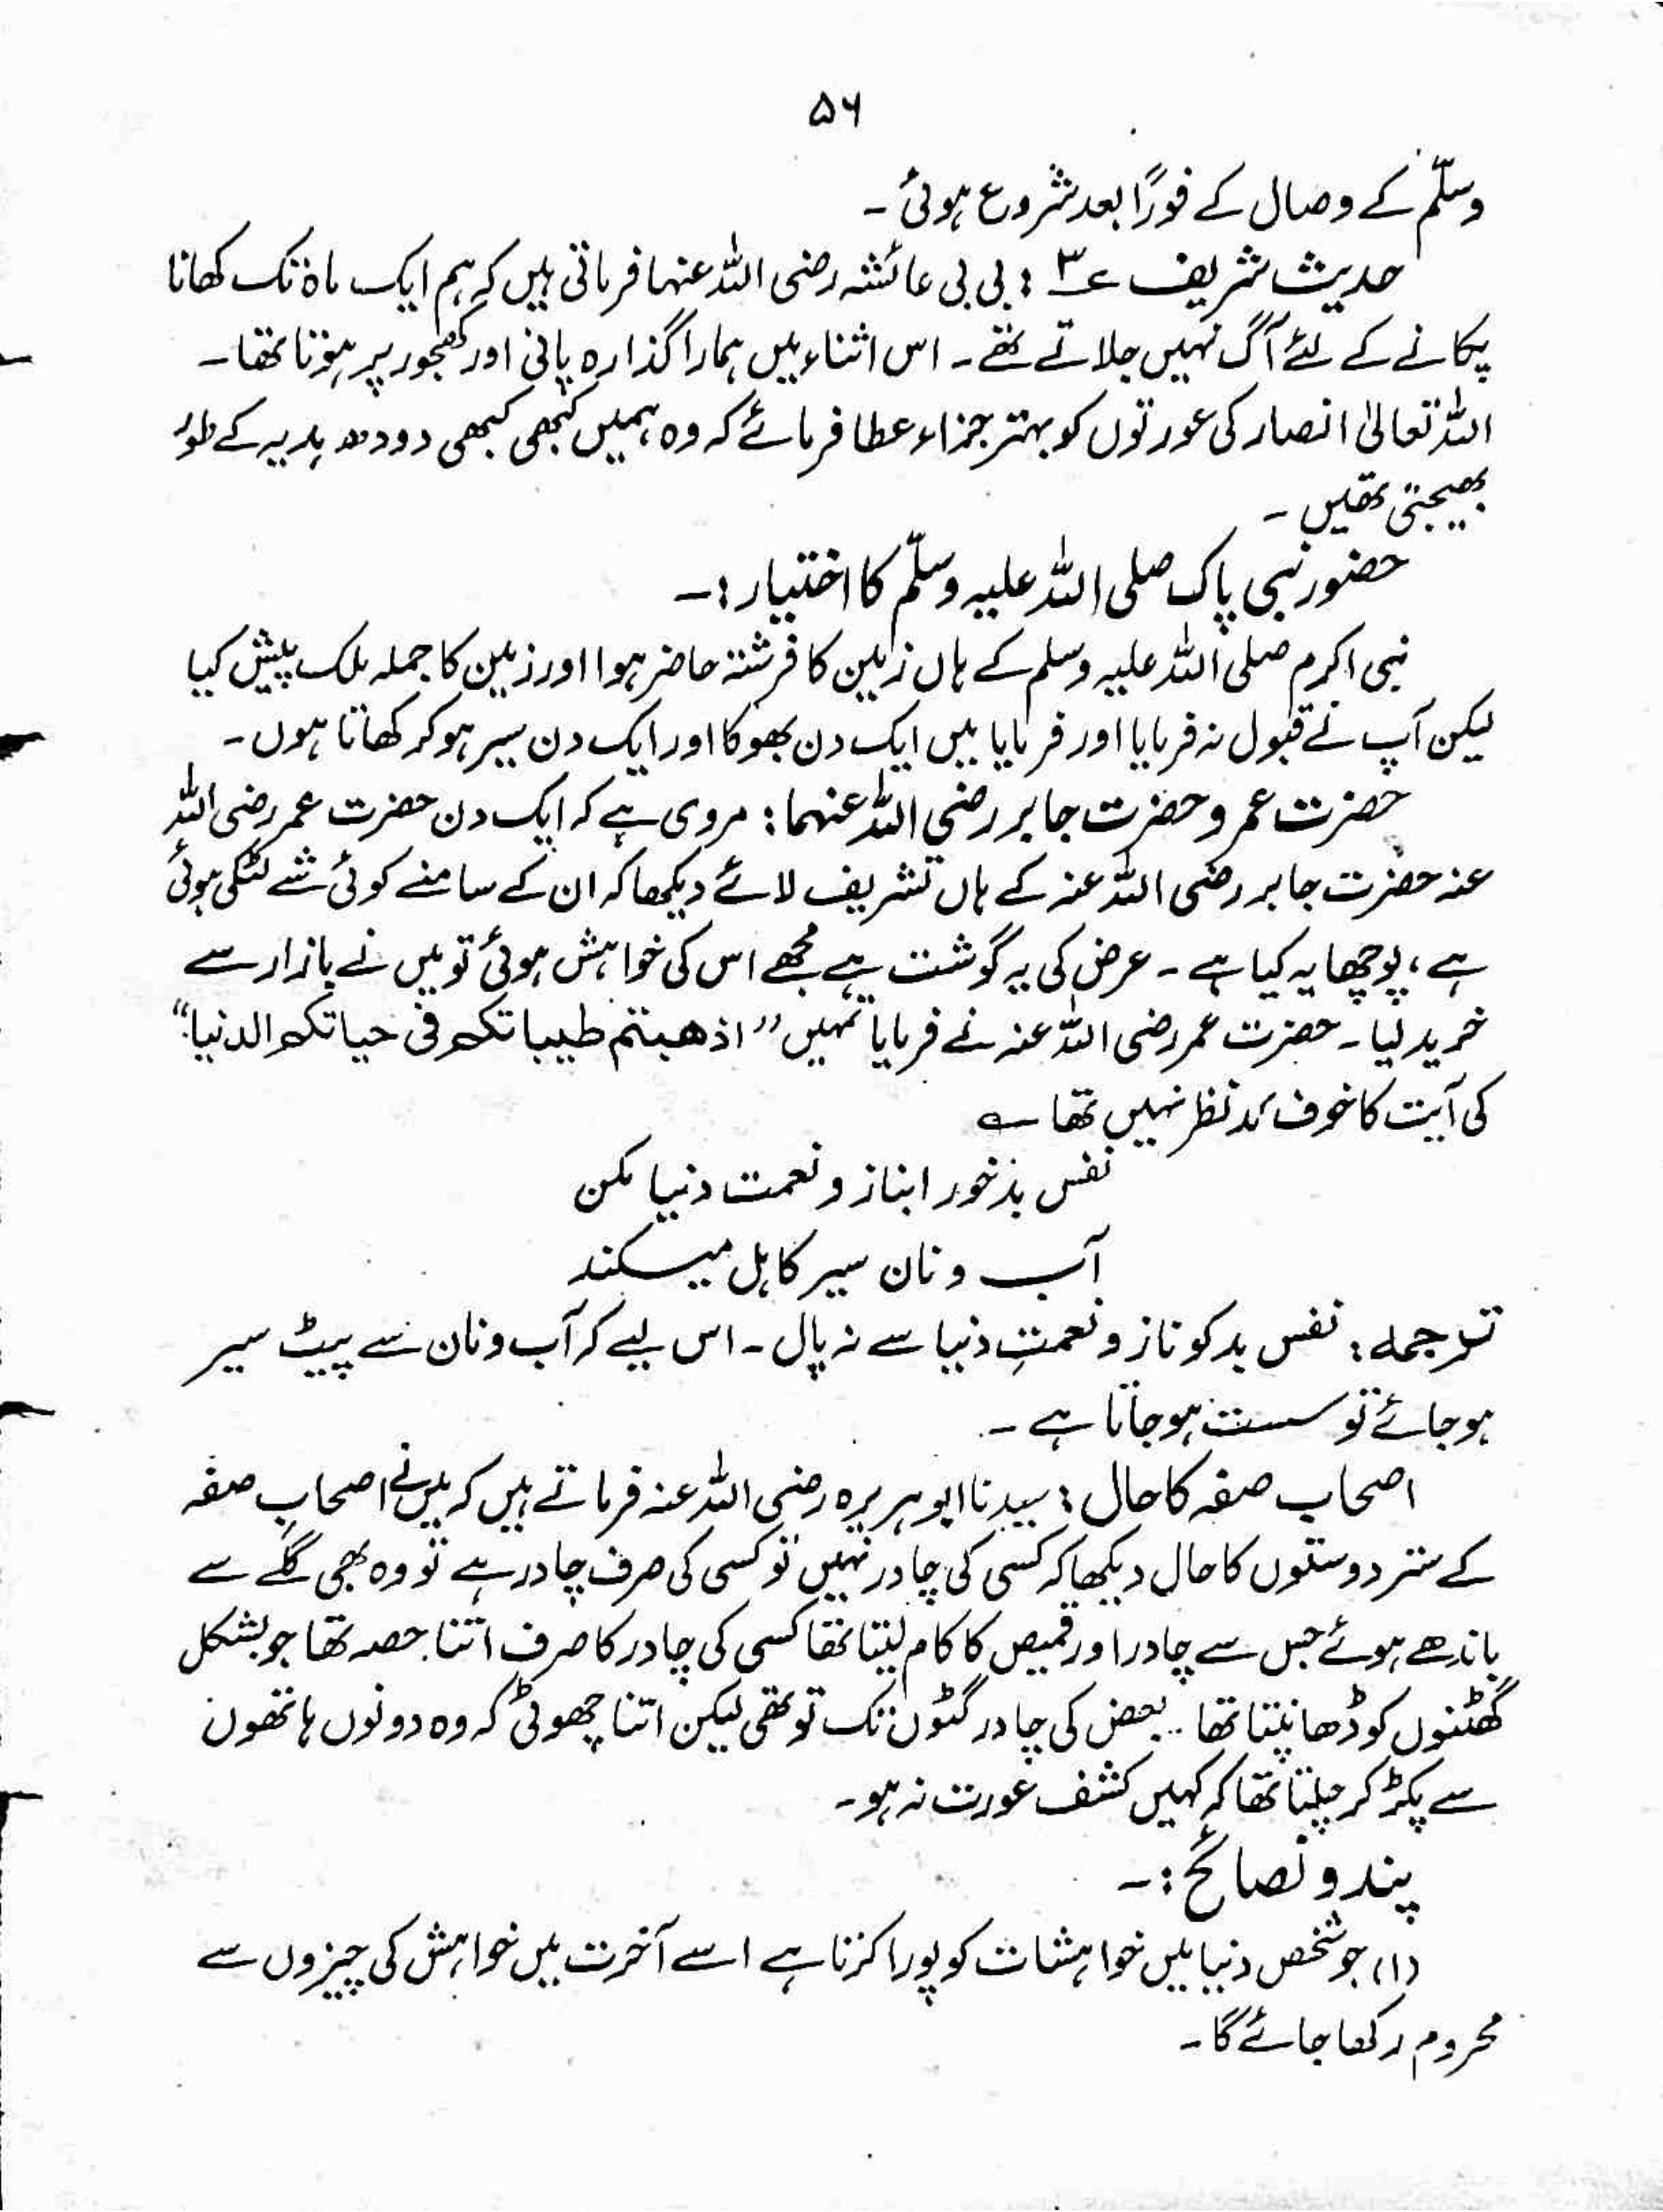 ۵۶
وسلّم کے وصال کے فورًا بعد شروع ہوئی ۔
حدیث شریف ۳؎ : بی بی عائشہ رضی اللہ عنہا فرماتی ہیں کہ ہم ایک ماہ تک کھانا
پکانے کے لئے آگ نہیں جلاتے تھے ۔ اس اثناء میں ہمارا گذارہ پانی اور کھجور پر ہوتا تھا ۔
اللہ تعالیٰ انصار کی عورتوں کو بہتر جزاء عطا فرمائے کہ وہ ہمیں کبھی کبھی دودھ ہدیہ کے طور
بھیجتی تھیں ۔
حضور نبی پاک صلی اللہ علیہ وسلّم کا اختیار :۔
نبی اکرم صلی اللہ علیہ وسلم کے ہاں زمین کا فرشتہ حاضر ہوا اور زمین کا جملہ ملک پیش کیا
لیکن آپ نے قبول نہ فرمایا اور فرمایا میں ایک دن بھوکا اور ایک دن سیر ہو کر کھاتا ہوں ۔
حضرت عمر و حضرت جابر رضی اللہ عنہما : مروی ہے کہ ایک دن حضرت عمر رضی اللہ
عنہ حضرت جابر رضی اللہ عنہ کے ہاں تشریف لائے دیکھا کہ ان کے سامنے کوئی شے لٹکی ہوئی
ہے ، پوچھا یہ کیا ہے ۔ عرض کی یہ گوشت ہے مجھے اس کی خواہش ہوئی تو میں نے بازار سے
خرید لیا ۔ حضرت عمر رضی اللہ عنہ نے فرمایا تمہیں ”اذھبتم طیباتکم فی حیاتکم الدنیا“
کی آیت کا خوف مدنظر نہیں تھا ؎
نفس بدخور ابناز و نعمت دنیا مکن
آب و نان سیر کاہل میکند
ترجمہ : نفس بد کو ناز و نعمتِ دنیا سے نہ پال ۔ اس لیے کہ آب و نان سے پیٹ سیر
ہو جائے تو سست ہو جاتا ہے ۔
اصحاب صفہ کا حال : سیدنا ابو ہریرہ رضی اللہ عنہ فرماتے ہیں کہ میں نے اصحابِ صفہ
کے ستر دوستوں کا حال دیکھا کہ کسی کی چادر نہیں تو کسی کی صرف چادر ہے تو وہ بھی گلے سے
باندھے ہوئے جس سے چادر اور قمیص کا کام لیتا تھا کسی کی چادر کا صرف اتنا حصہ تھا جو بشکل
گھٹنوں کو ڈھانپتا تھا ۔ بعض کی چادر گٹوں تک تو تھی لیکن اتنا چھوٹی کہ وہ دونوں ہاتھوں
سے پکڑ کر چلتا تھا کہ کہیں کشف عورت نہ ہو ۔
پند و نصائح :۔
(۱) جو شخص دنیا میں خواہشات کو پورا کرتا ہے اسے آخرت میں خواہش کی چیزوں سے
محروم رکھا جائے گا ۔